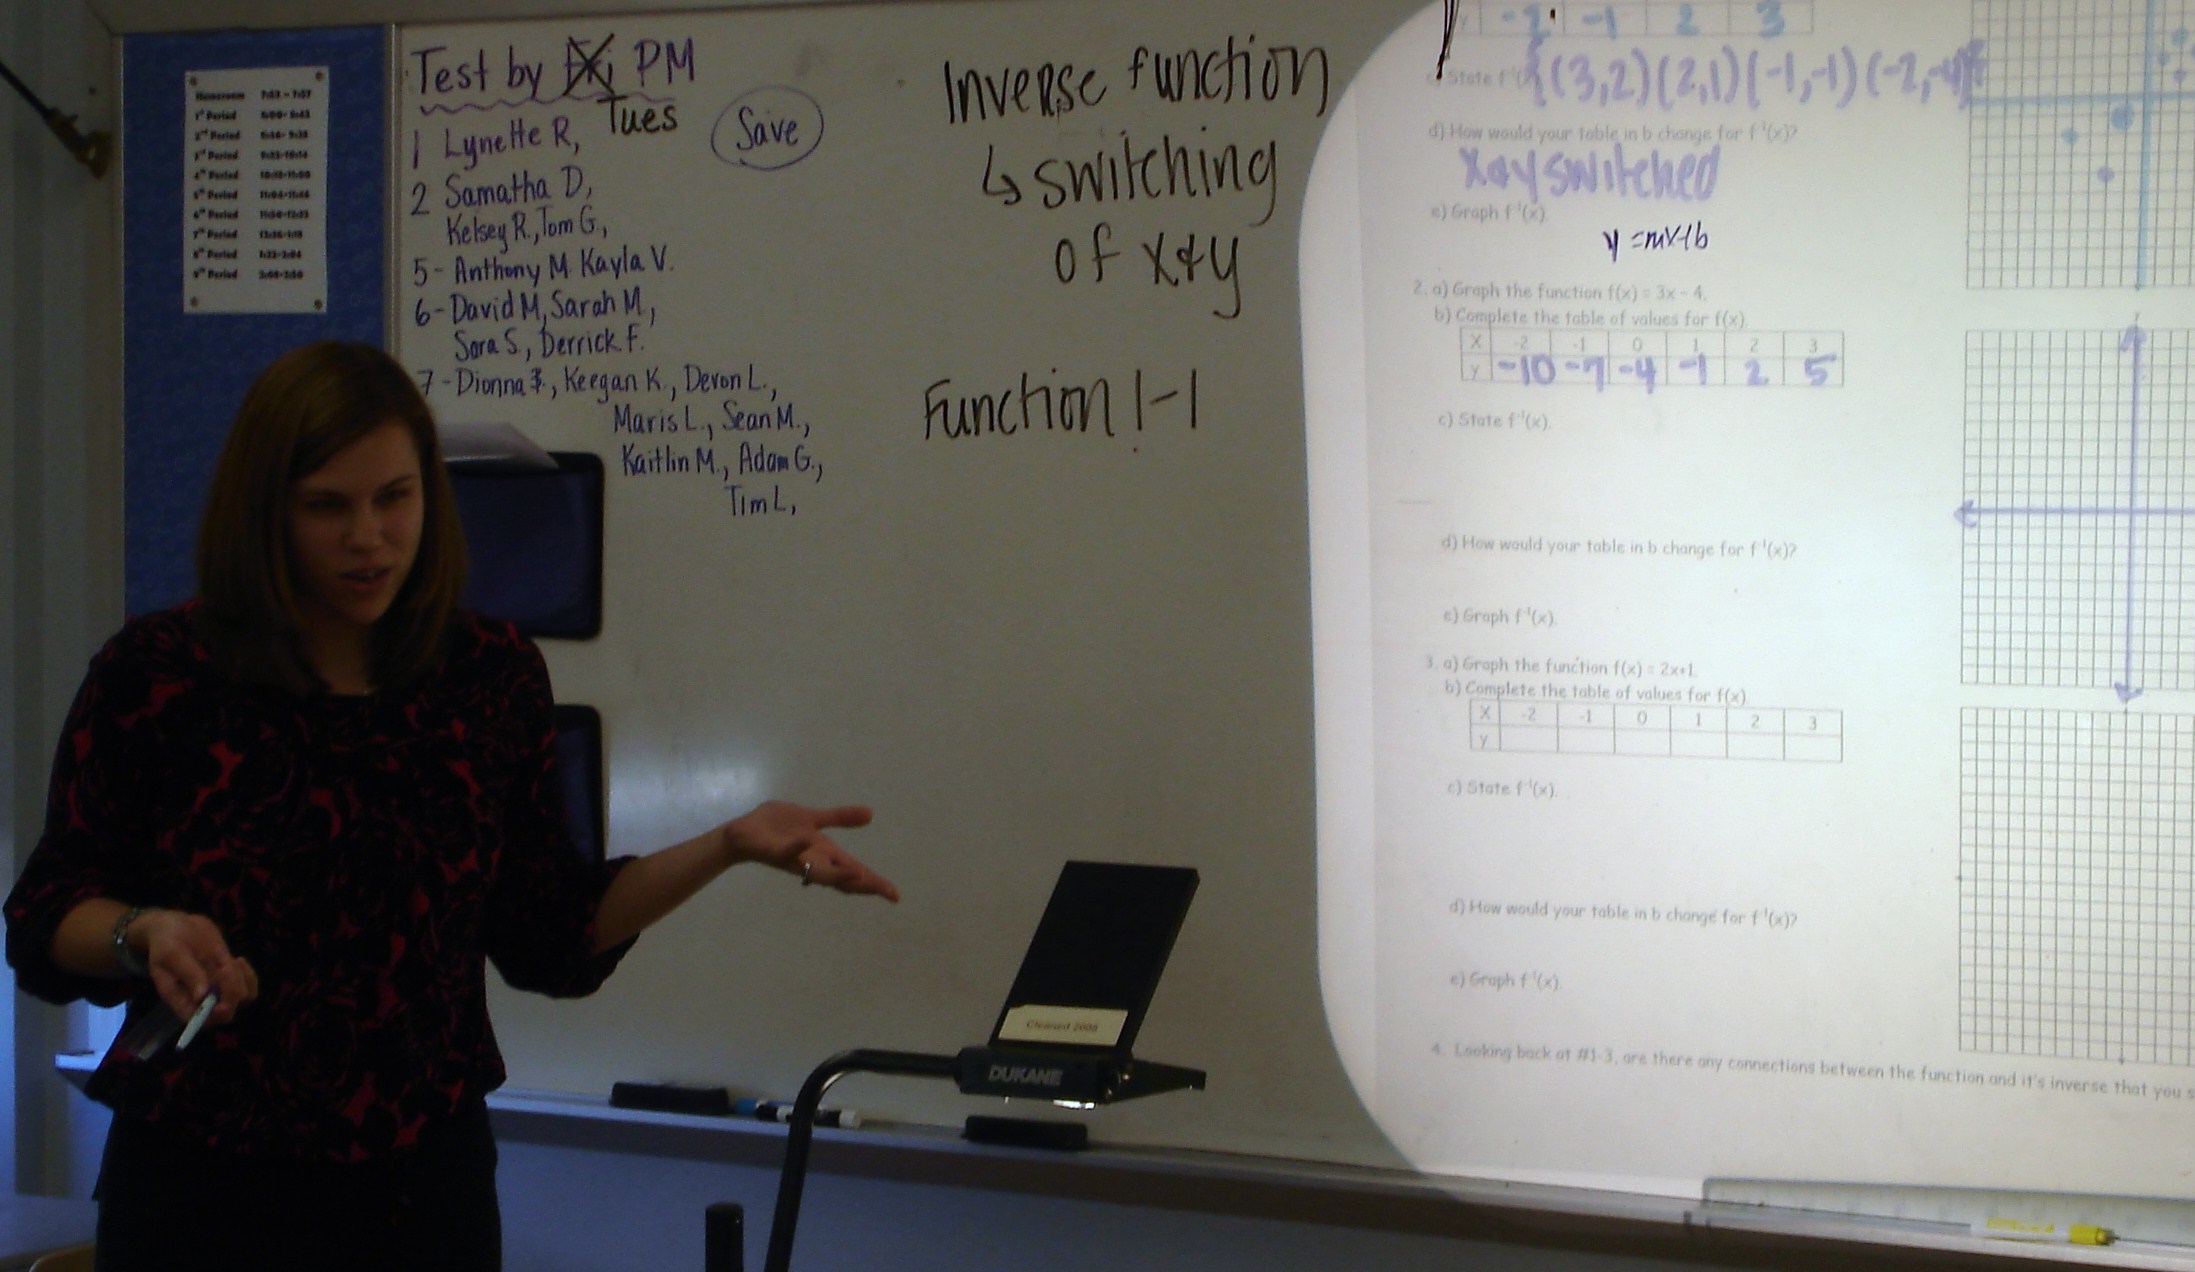 Test by Fri PM
Tues
Save
1 Lynette R,
2 Samatha D,
Kelsey R., Tom G.,
5 - Anthony M. Kayla V.
6 - David M, Sarah M.,
Sara S., Derrick F.
7 - Dionna, Keegan K., Devon L.,
Maris L., Sean M.,
Kaitlin M., Adam G.,
Tim L,
Homeroom 7:53 - 7:57
1st Period
2nd Period
3rd Period
4th Period
5th Period
6th Period
7th Period
8th Period
9th Period
Inverse function
↳ switching
of x & y
Function 1-1
y -2 -1 2 3
c) State f⁻¹(x) {(3,2)(2,1)(-1,-1)(-2,-4)}
d) How would your table in b change for f⁻¹(x)?
x & y switched
e) Graph f⁻¹(x).
y = mx + b
2. a) Graph the function f(x) = 3x - 4.
b) Complete the table of values for f(x)
x -2 -1 0 1 2 3
y -10 -7 -4 -1 2 5
c) State f⁻¹(x).
d) How would your table in b change for f⁻¹(x)?
e) Graph f⁻¹(x).
3. a) Graph the function f(x) = 2x+1.
b) Complete the table of values for f(x)
x -2 -1 0 1 2 3
y
c) State f⁻¹(x).
d) How would your table in b change for f⁻¹(x)?
e) Graph f⁻¹(x).
4. Looking back at #1-3, are there any connections between the function and it's inverse that you s
Cleaned 2008
DUKANE